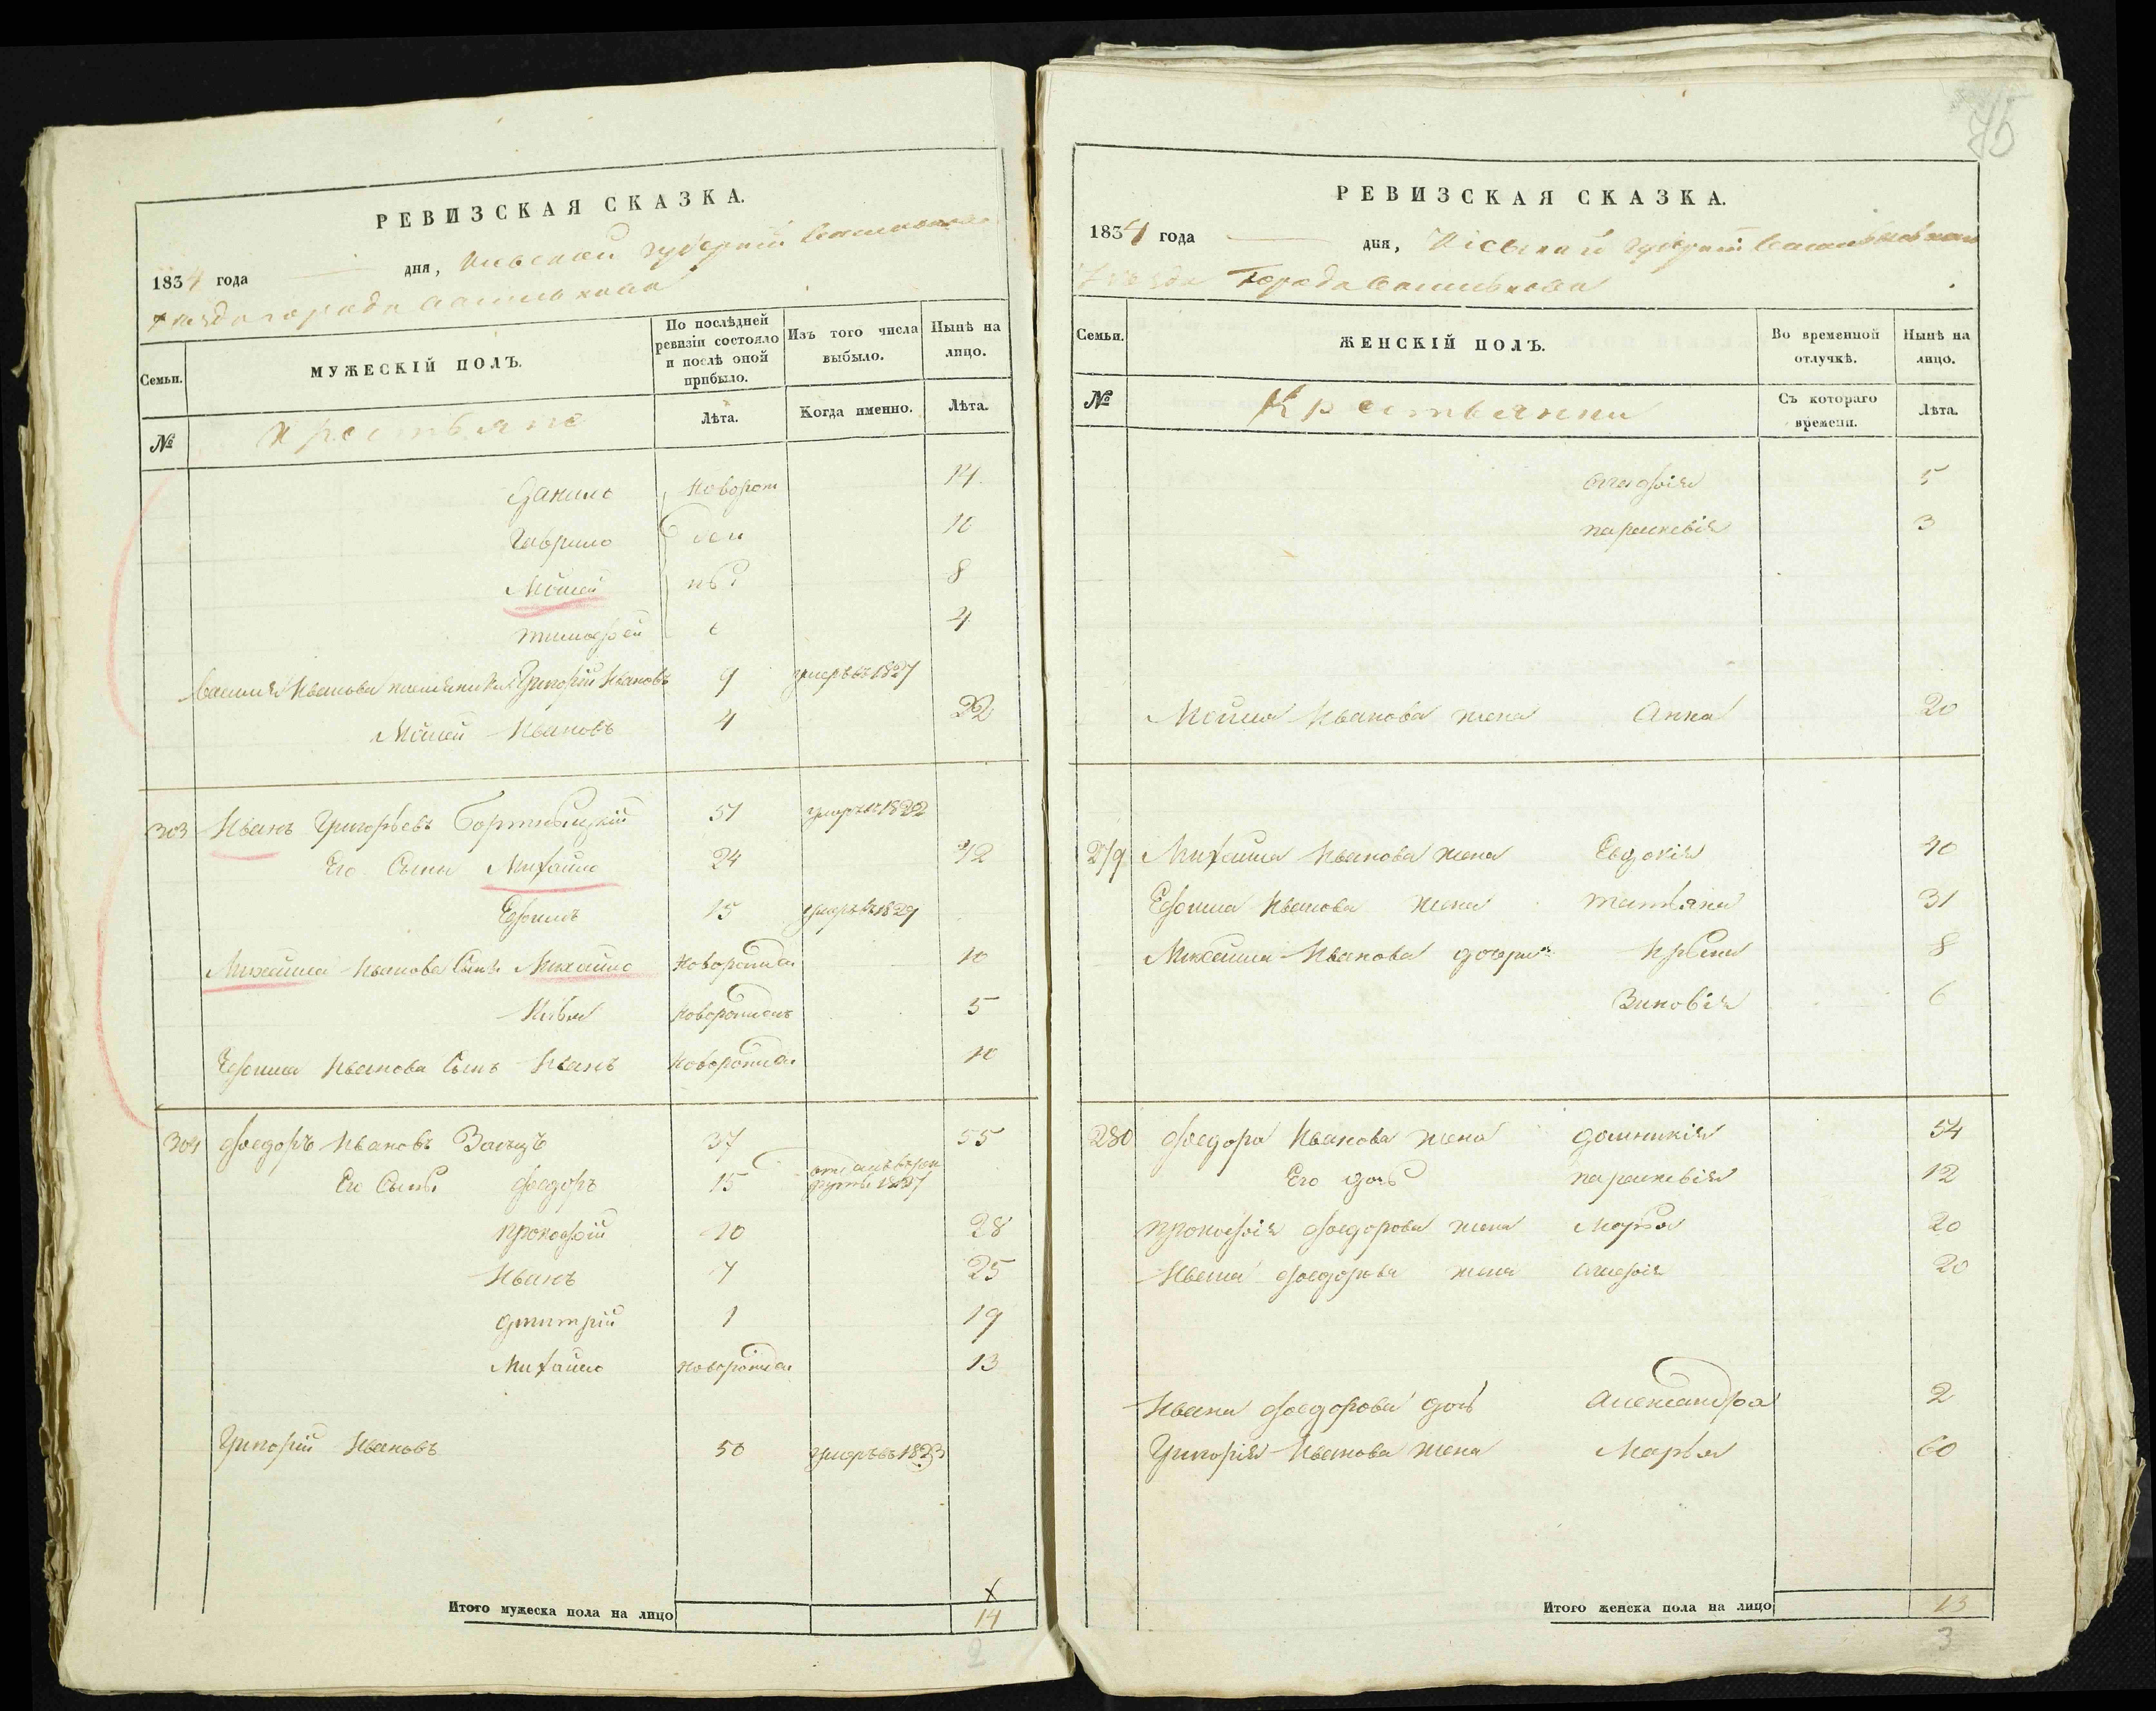 РЕВИЗСКАЯ СКАЗКА.
1834 года дня, Киевской губернии Васильковскаго
уезда города Василькова
Семьи.
МУЖЕСКІЙ ПОЛЪ.
По послѣдней ревизіи состояло и послѣ оной прибыло.
Изъ того числа выбыло.
Нынѣ на лицо.
№
Крестьяне
Лѣта.
Когда именно.
Лѣта.
Данило новорож 14
Гаврило ден 10
Мойсей 8
тимофей 4
Василия Иванова племянники Григорій Ивановъ 9 умеръ въ 1827
Мойсей Ивановъ 4 22
303 Иванъ Григорьевъ умеръ въ 1822
Его Сыны Михайло 24 42
Ефимъ 15 умеръ въ 1829
Михайла Иванова Сынъ Михайло новорожден 10
новорожденъ 5
Ефима Иванова Сынъ Иванъ новорожден 10
304 федоръ Ивановъ Заецъ 37 55
Его Сыны федоръ 15 отданъ въ рекруты 1827
прокофій 10 28
Иванъ 7 25
дмитрій 1 19
Михайло новорожден 13
Григорій Ивановъ 50 умеръ въ 1823
Итого мужеска пола на лицо
14
2
75
РЕВИЗСКАЯ СКАЗКА.
1834 года дня, Кіевской губерніи Васильковскаго
уезда Города Василькова
Семьи.
ЖЕНСКІЙ ПОЛЪ.
Во временной отлучкѣ.
Нынѣ на лицо.
№
Крестьянки
Съ котораго времени.
Лѣта.
агафія 5
параскевія 3
Мойсея Иванова жена Анна 20
279 Михайла Иванова жена Евдокія 40
Ефима Иванова жена татьяна 31
Михайла Иванова дочери 8
Зиновія 6
280 федора Иванова жена домникія 54
Его дочь параскевія 12
прокофія федорова жена Марфа 20
Ивана федорова жена агафія 20
Ивана федорова дочь Александра 2
Григорія Иванова жена Марья 60
Итого женска пола на лицо
13
3